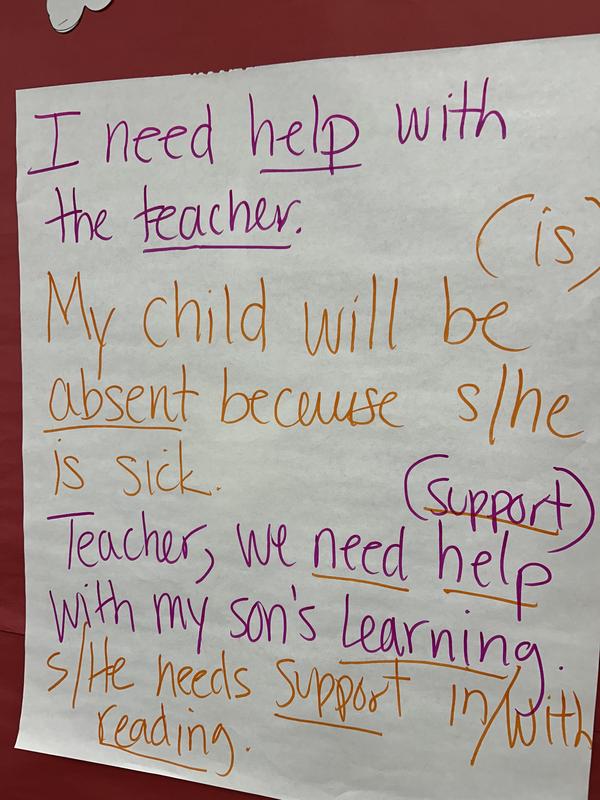 I need help with
the teacher.
(is)
My child will be
absent because s/he
is sick.
(support)
Teacher, we need help
with my son's learning.
s/He needs support in/with
reading.